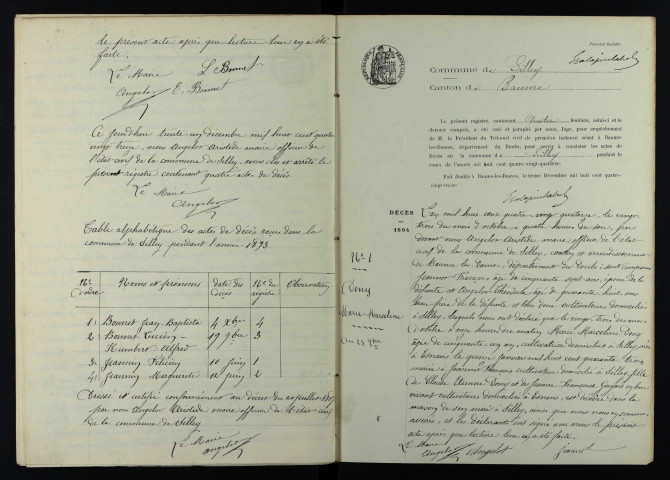 le présent acte après que lecture leur en a été
faite.
Le Maire L Bonnet
Angelot E. Bonnet
Ce jourd'hui trente un décembre mil huit cent quatre
vingt treize, nous Angelot Aristide maire officier de
l'état civil de la commune de Silley, avons clos et arrêté le
présent registre contenant quatre actes de décès
Le Maire
Angelot
Table alphabétique des actes de décès reçus dans la
commune de Silley pendant l'année 1893
Nos d'ordre Noms et prénoms date des décès No du registre Observations
1 Bonnet Jean Baptiste 4 Xbre 4
2 Bonnet Lucien 19 9bre 3
Humbert Alfred
3 Jeannin Félicien 10 juin 1
4 Jeannin Marguerite 10 juin 2
Dressé et certifié conformément au décret du 20 juillet 1807
par nous Angelot Aristide maire officier de l'état civil
de la commune de Silley
Le Maire
Angelot
Premier feuillet
Commune de Silley
Canton de Baume
Le présent registre, contenant quatre feuillets, celui-ci et le
dernier compris, a été coté et paraphé par nous, Juge, pour empêchement
de M. le Président du Tribunal civil de première instance séant à Baume-
les-Dames, département du Doubs, pour servir à constater les actes de
Décès en la commune de Silley pendant le
cours de l'année mil huit cent quatre-vingt-quatorze.
Fait double à Baume-les-Dames, le treize Décembre mil huit cent quatre-
vingt-treize.
DÉCÈS
1894
No 1
Marie Marceline
L'an mil huit cent quatre vingt quatorze, le vingt
trois du mois d'octobre à quatre heures du soir, par
devant nous Angelot Aristide maire, officier de l'état
civil de la commune de Silley, canton et arrondissement
de Baume les Dames, département du Doubs sont comparus
Jeannot François âgé de cinquante sept ans, mari de la
défunte et Angelot âgé de quarante huit ans
beau frère de la défunte et tous deux cultivateurs domiciliés
à Silley, lesquels nous ont déclaré que le vingt trois du mois
d'octobre à onze heures du matin, Marie Marceline
âgée de cinquante un ans, cultivatrice domiciliée à Silley, née
à Esnans le quinze janvier mil huit cent quarante trois
mariée à Jeannot François cultivateur domicilié à Silley, fille
de Claude Etienne et de Jeanne Françoise
vivant cultivateurs domiciliés à Esnans, est décédée dans la
maison de son mari à Silley, ainsi que nous nous en sommes
assuré, et les déclarants ont signé avec nous le présent
acte après que lecture leur en a été faite.
Le Maire
Angelot Angelot Jeannot